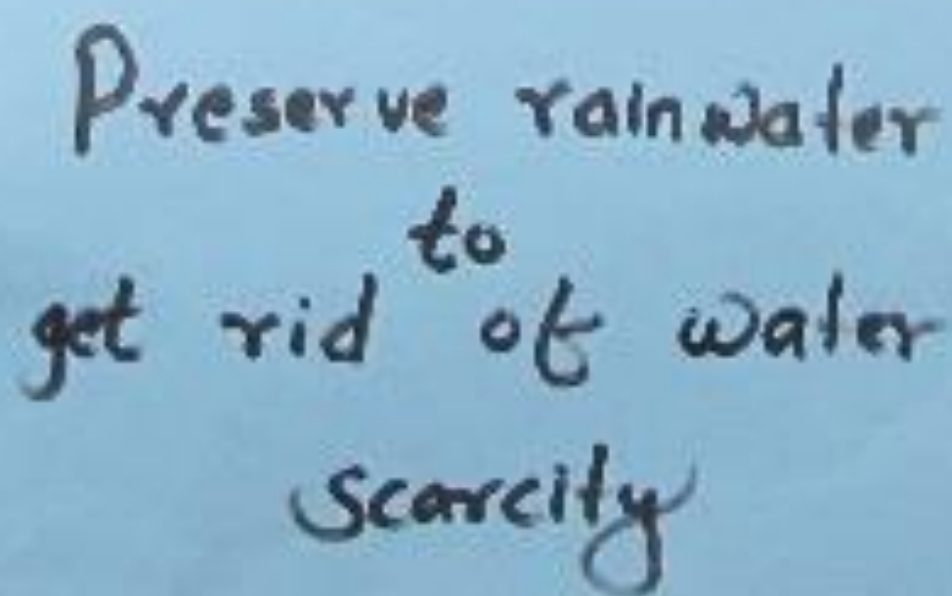 Preserve rainwater
to
get rid of water
scarcity